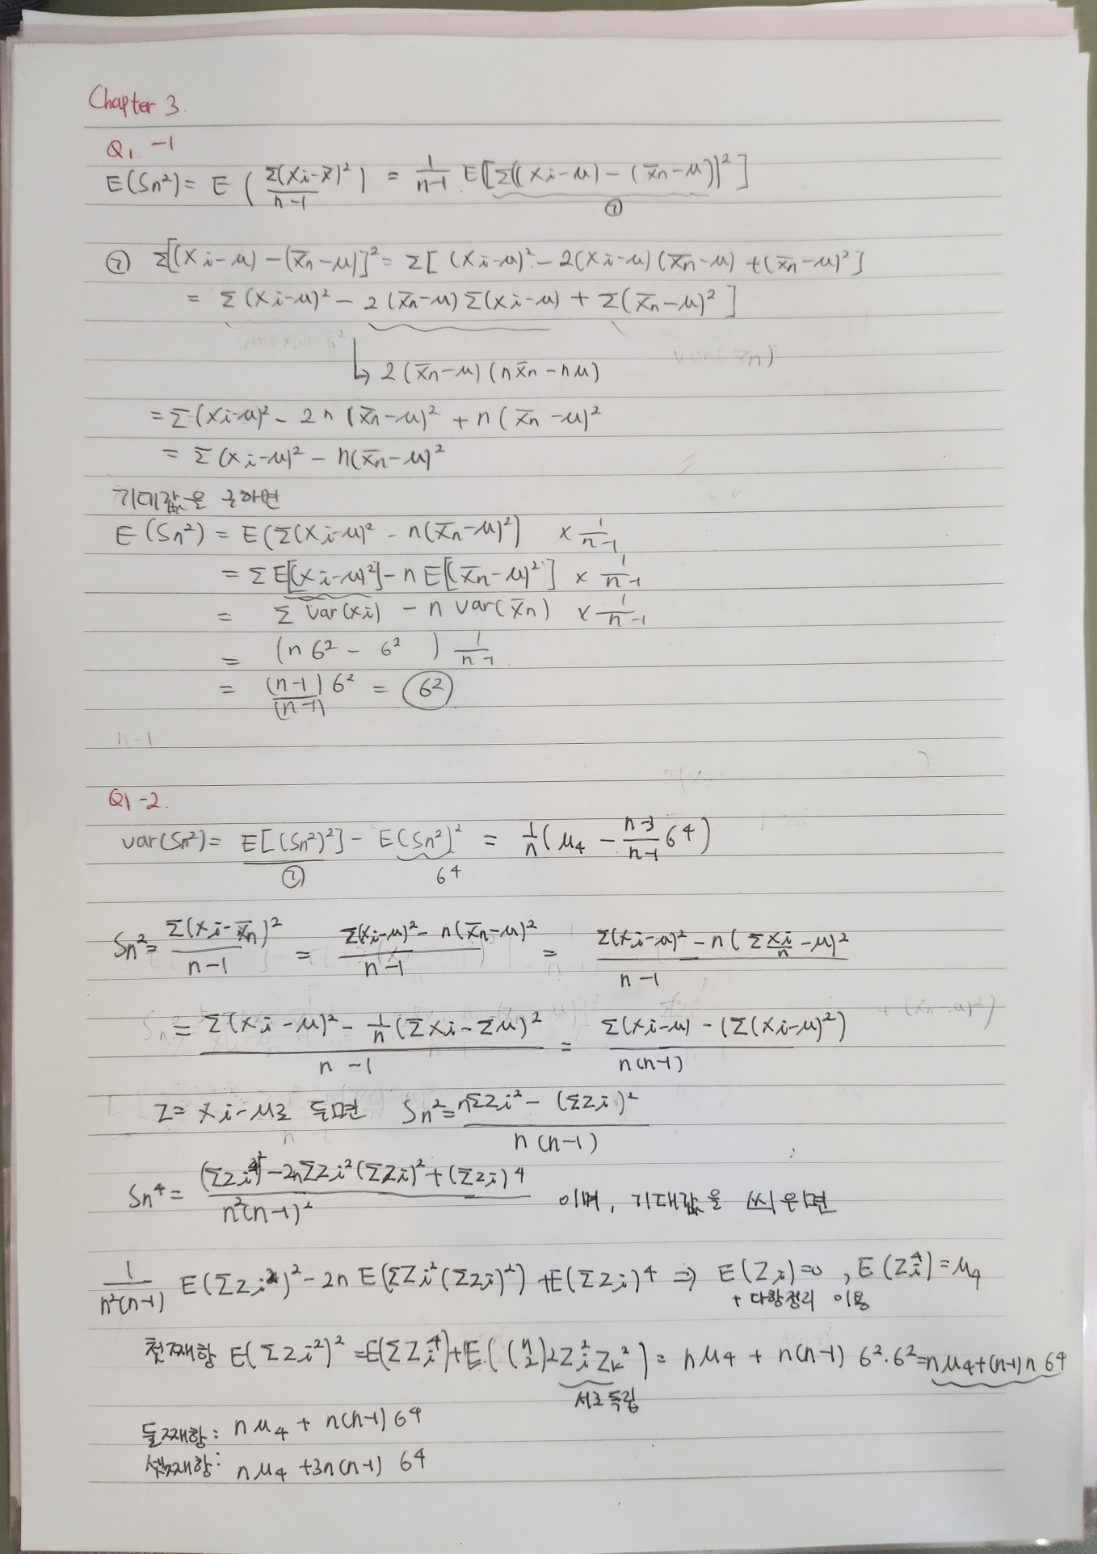 Chapter 3.
Q1. -1
E(Sn²) = E ( Σ(Xi-x̄)² / n-1 ) = 1/n-1 E[Σ((Xi-μ) - (x̄n-μ))²]
①
① Σ[(Xi-μ) - (x̄n-μ)]² = Σ[ (Xi-μ)² - 2(Xi-μ)(x̄n-μ) + (x̄n-μ)²]
= Σ(Xi-μ)² - 2(x̄n-μ)Σ(Xi-μ) + Σ(x̄n-μ)² ]
↳ 2(x̄n-μ)(nx̄n-nμ)
= Σ(Xi-μ)² - 2n(x̄n-μ)² + n(x̄n-μ)²
= Σ(Xi-μ)² - n(x̄n-μ)²
기대값을 구하면
E(Sn²) = E(Σ(Xi-μ)² - n(x̄n-μ)²) × 1/n-1
= ΣE[(Xi-μ)²] - nE[(x̄n-μ)²] × 1/n-1
= Σ Var(Xi) - n Var(x̄n) × 1/n-1
= (n6² - 6² ) 1/n-1
= (n-1)6² / (n-1) = 6²
n-1
Q1-2.
Var(Sn²) = E[(Sn²)²] - E(Sn²)² = 1/n (μ4 - n-3/n-1 6⁴)
① 6⁴
Sn² = Σ(Xi-x̄n)² / n-1 = Σ(Xi-μ)² - n(x̄n-μ)² / n-1 = Σ(Xi-μ)² - n(ΣXi/n - μ)² / n-1
= Σ(Xi-μ)² - 1/n(ΣXi-Σμ)² / n-1 = Σ(Xi-μ) - (Σ(Xi-μ)²) / n(n-1)
Z = Xi-μ로 두면 Sn² = nΣZi² - (ΣZi)² / n(n-1)
Sn⁴ = (ΣZi²)² - 2nΣZi²(ΣZi)² + (ΣZi)⁴ / n²(n-1)² 이며, 기대값을 씌우면
1/n²(n-1) E(ΣZi²)² - 2n E(ΣZi²(ΣZi)²) + E(ΣZi)⁴ ⇒ E(Zi)=0, E(Zi⁴)=μ4
+ 다항정리 이용
첫째항 E(ΣZi²)² = E(ΣZi⁴) + E( (n 2) 2Zi²Zk² ) = nμ4 + n(n-1) 6²·6² = nμ4+(n-1)n 6⁴
서로 독립
둘째항: nμ4 + n(n-1) 6⁴
셋째항: nμ4 + 3n(n-1) 6⁴